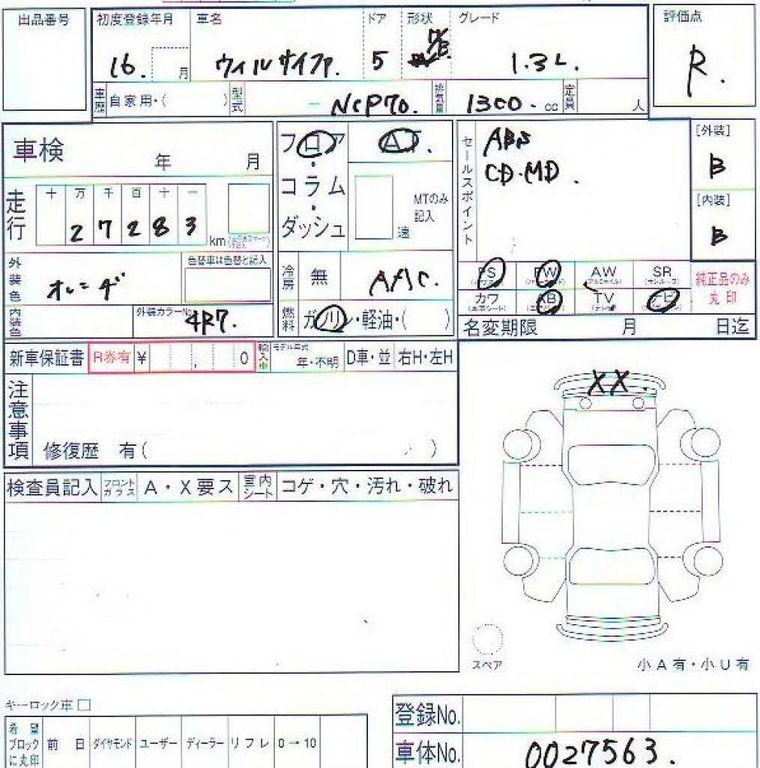 出品番号 初度登録年月 車名 ドア 形状 グレード 評価点
16. 月 ウィルサイファ. 5 H/B 1.3L. R.
車歴 自家用・( ) 型式 - NCP70. 排気量 1300.cc 定員 人
車検 年 月
フロア・コラム・ダッシュ AT. MTのみ記入 速
セールスポイント ABS
CD・MD.
[外装] B
[内装] B
走行 十 万 千 百 十 一
27283 km
外装色 オレンヂ 色替車は色替と記入
内装色 外装カラーNo. 4R7.
冷房 無 A/C.
燃料 ガソリン・軽油・( )
PS PW AW SR 純正品のみ丸印
カワ AB TV ナビ
名変期限 月 日迄
新車保証書 R券有 ¥ , 0 輸入車 モデル年式 年・不明 D車・並 右H・左H
注意事項 修復歴 有( )
XX.
検査員記入 フロントガラス A・X要ス 室内シート コゲ・穴・汚れ・破れ
スペア 小A有・小U有
キーロック車
希望ブロックに丸印 前日 ダイヤモンド ユーザー ディーラー リフレ 0→10
登録No.
車体No. 0027563.